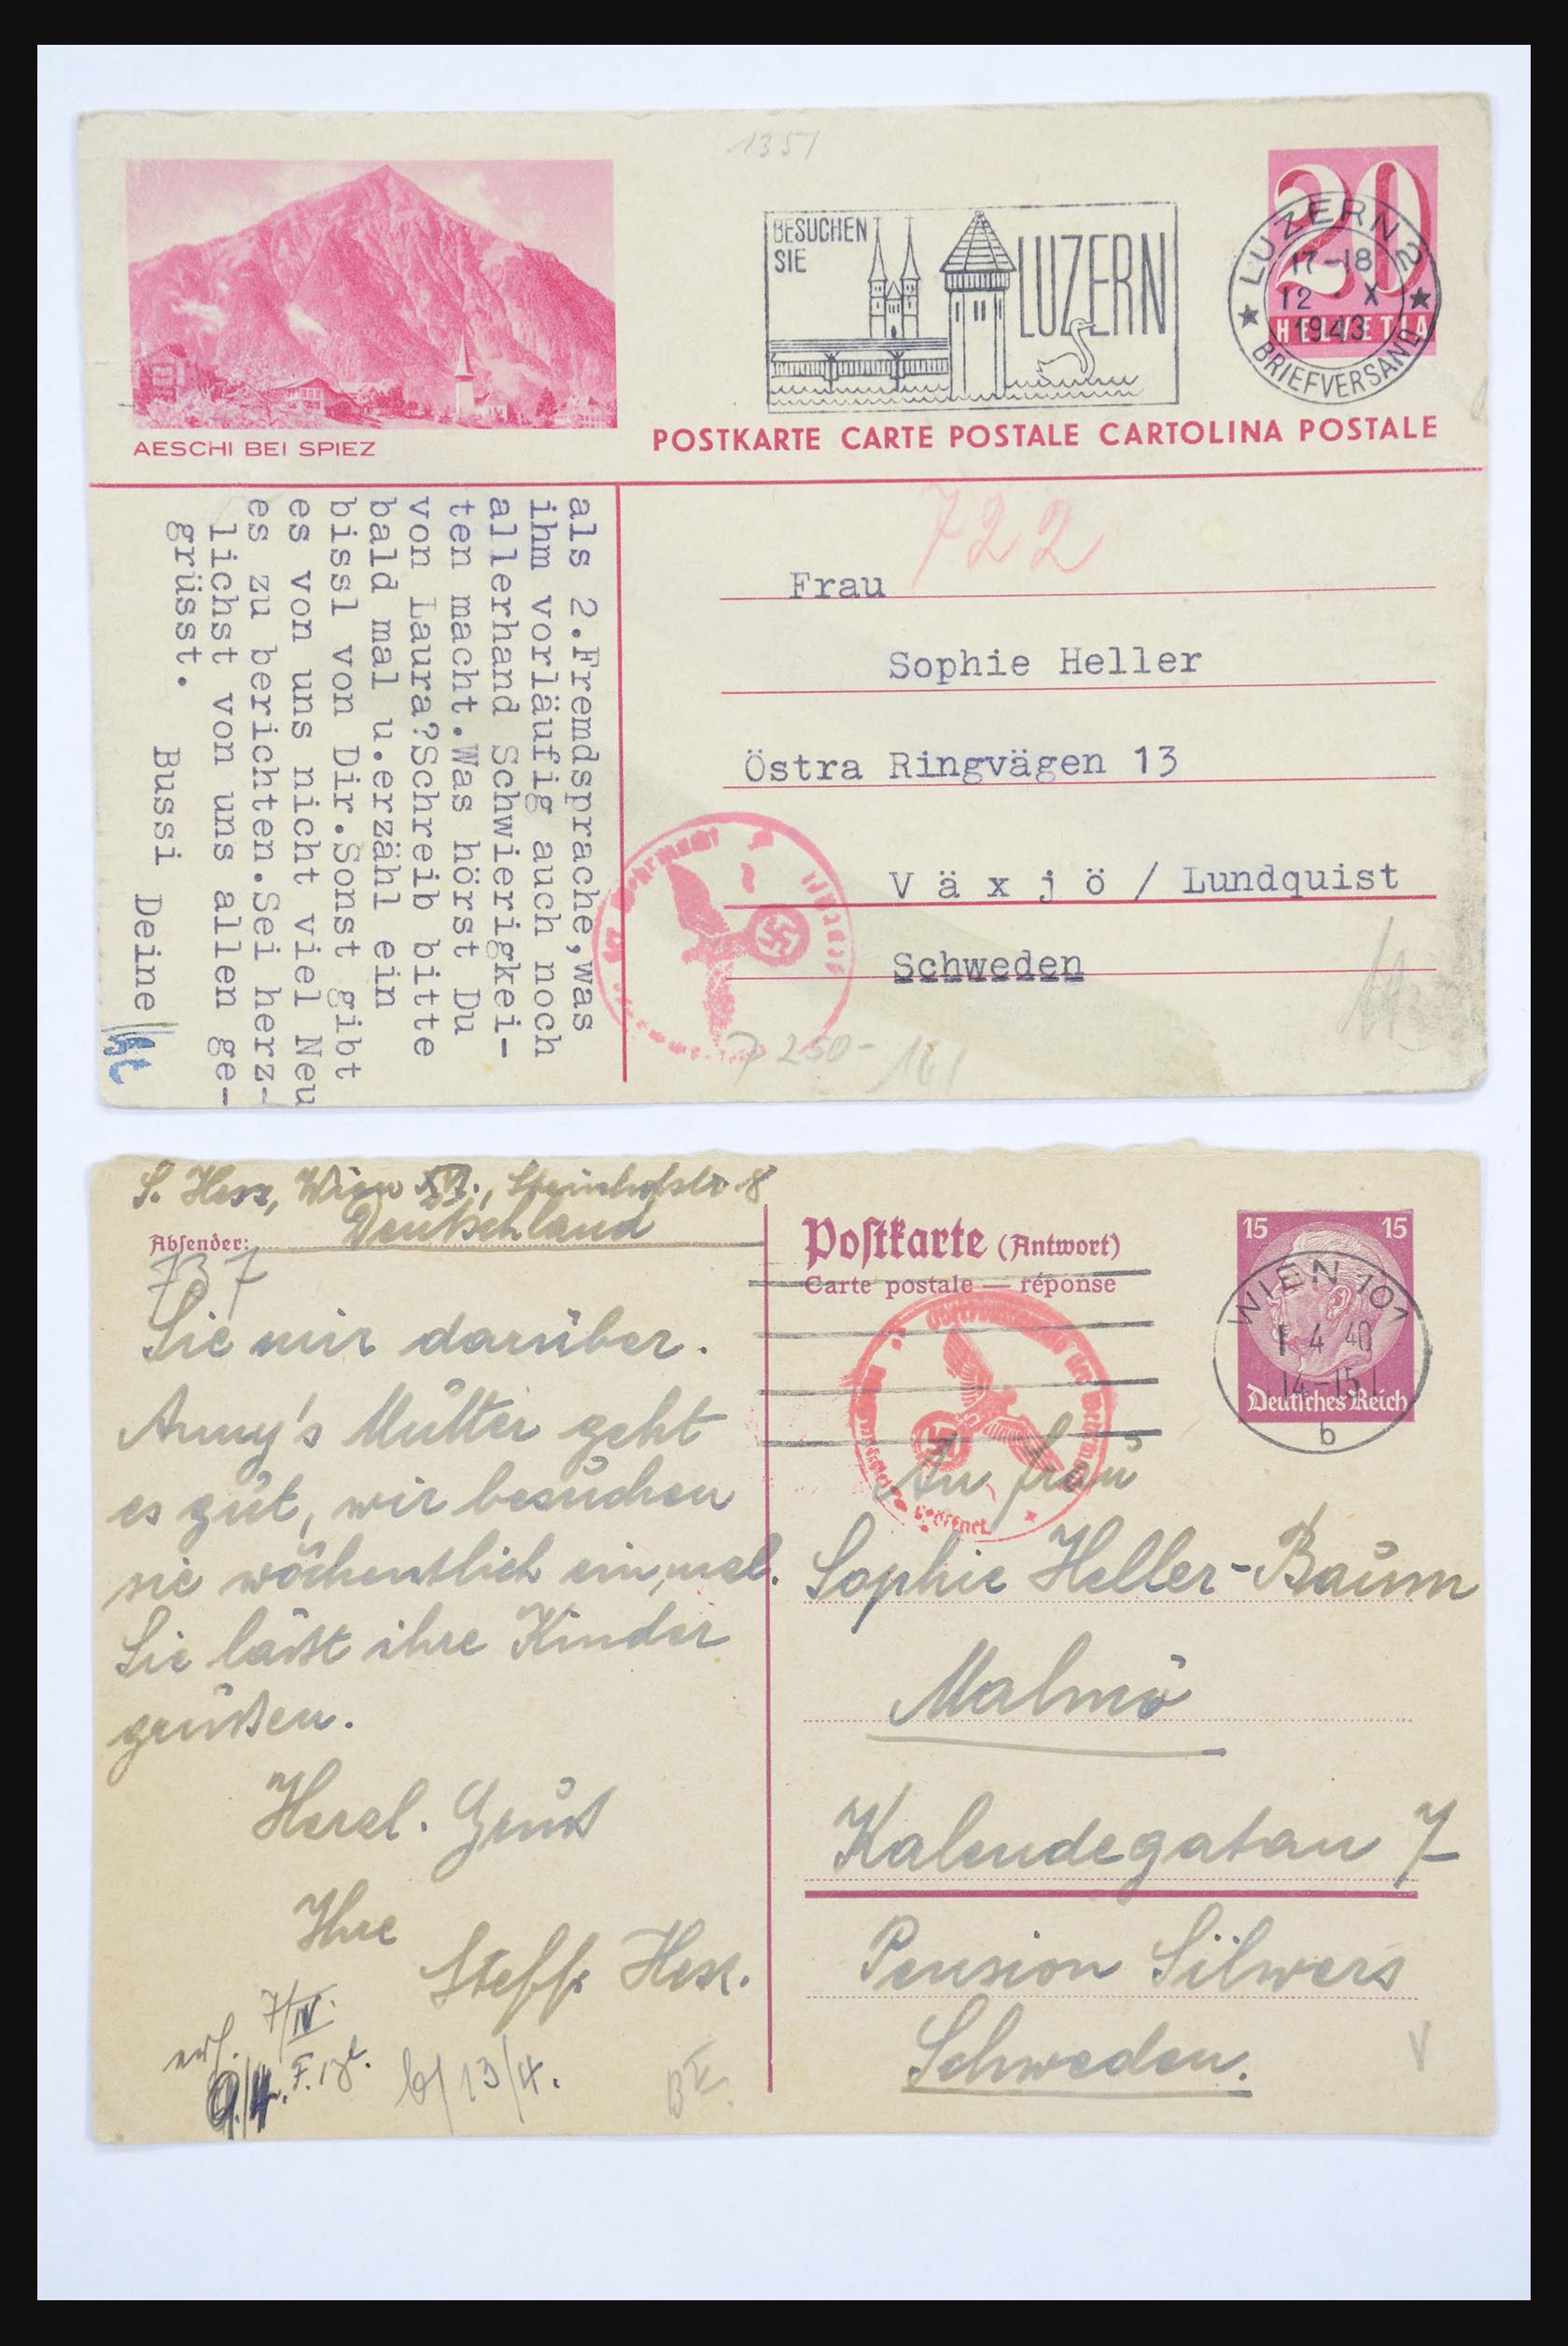 1351
BESUCHEN
SIE
LUZERN
20
HELVETIA
LUZERN 2
17-18
12 · X
1943
★ BRIEFVERSAND ★
AESCHI BEI SPIEZ
POSTKARTE CARTE POSTALE CARTOLINA POSTALE
als 2.Fremdsprache,was
ihm vorläufig auch noch
allerhand Schwierigkei-
ten macht.Was hörst Du
von Laura?Schreib bitte
bald mal u.erzähl ein
bissl von Dir.Sonst gibt
es von uns nicht viel Neu
es zu berichten.Sei herz-
lichst von uns allen ge-
grüsst.
Bussi
Deine
722
Frau
Sophie Heller
Östra Ringvägen 13
V ä x j ö / Lundquist
Schweden
250-
S. Hess, Wien Steinhofstr 8
Deutschland
Absender:
737
Sie mir darüber.
Anny's Mutter geht
es gut, wir besuchen
sie wöchentlich einmal.
Sie läßt ihre Kinder
grüßen.
Herzl. Gruß
Ihre
Steffi Hess.
7/IV.
9/4.
b/13/4.
Postkarte (Antwort)
Carte postale — réponse
15 15
Deutsches Reich
WIEN 101
1 4 40
14-15
b
geöffnet
An Frau
Sophie Heller-Baum
Malmö
Kalendegatan 7
Pension Silwers
Schweden.